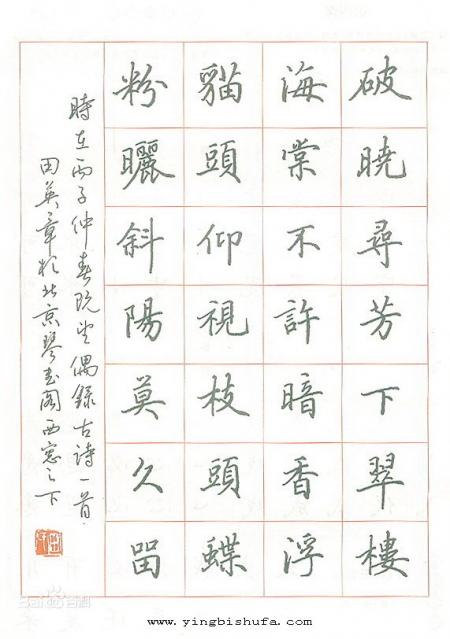 破曉尋芳下翠樓
海棠不許暗香浮
貓頭仰視枝頭蝶
粉曬斜陽莫久留
時在丙子仲春既望偶錄古詩一首
田英章於北京琴書閣西窗之下
Bai百科
www.yingbishufa.com